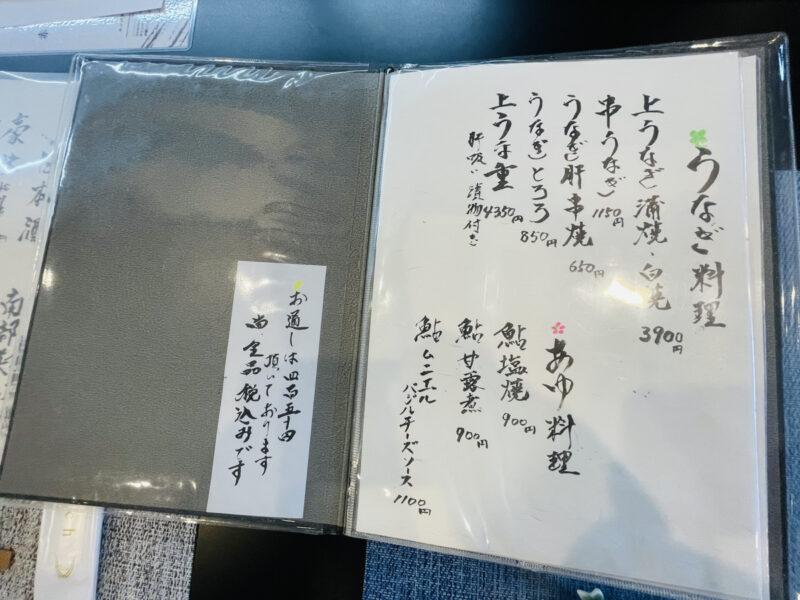 うなぎ料理
上うなぎ蒲焼・白焼 3900円
串うなぎ 1150円
うなぎ肝串焼 650円
うなぎとろろ 850円
上うな重 4350円
肝吸い漬物付き
あゆ料理
鮎塩焼 900円
鮎甘露煮 900円
鮎ムニエル
バジルチーズソース 1100円
お通しは四百五十円
頂いております
尚全品税込みです
本酒
南部美